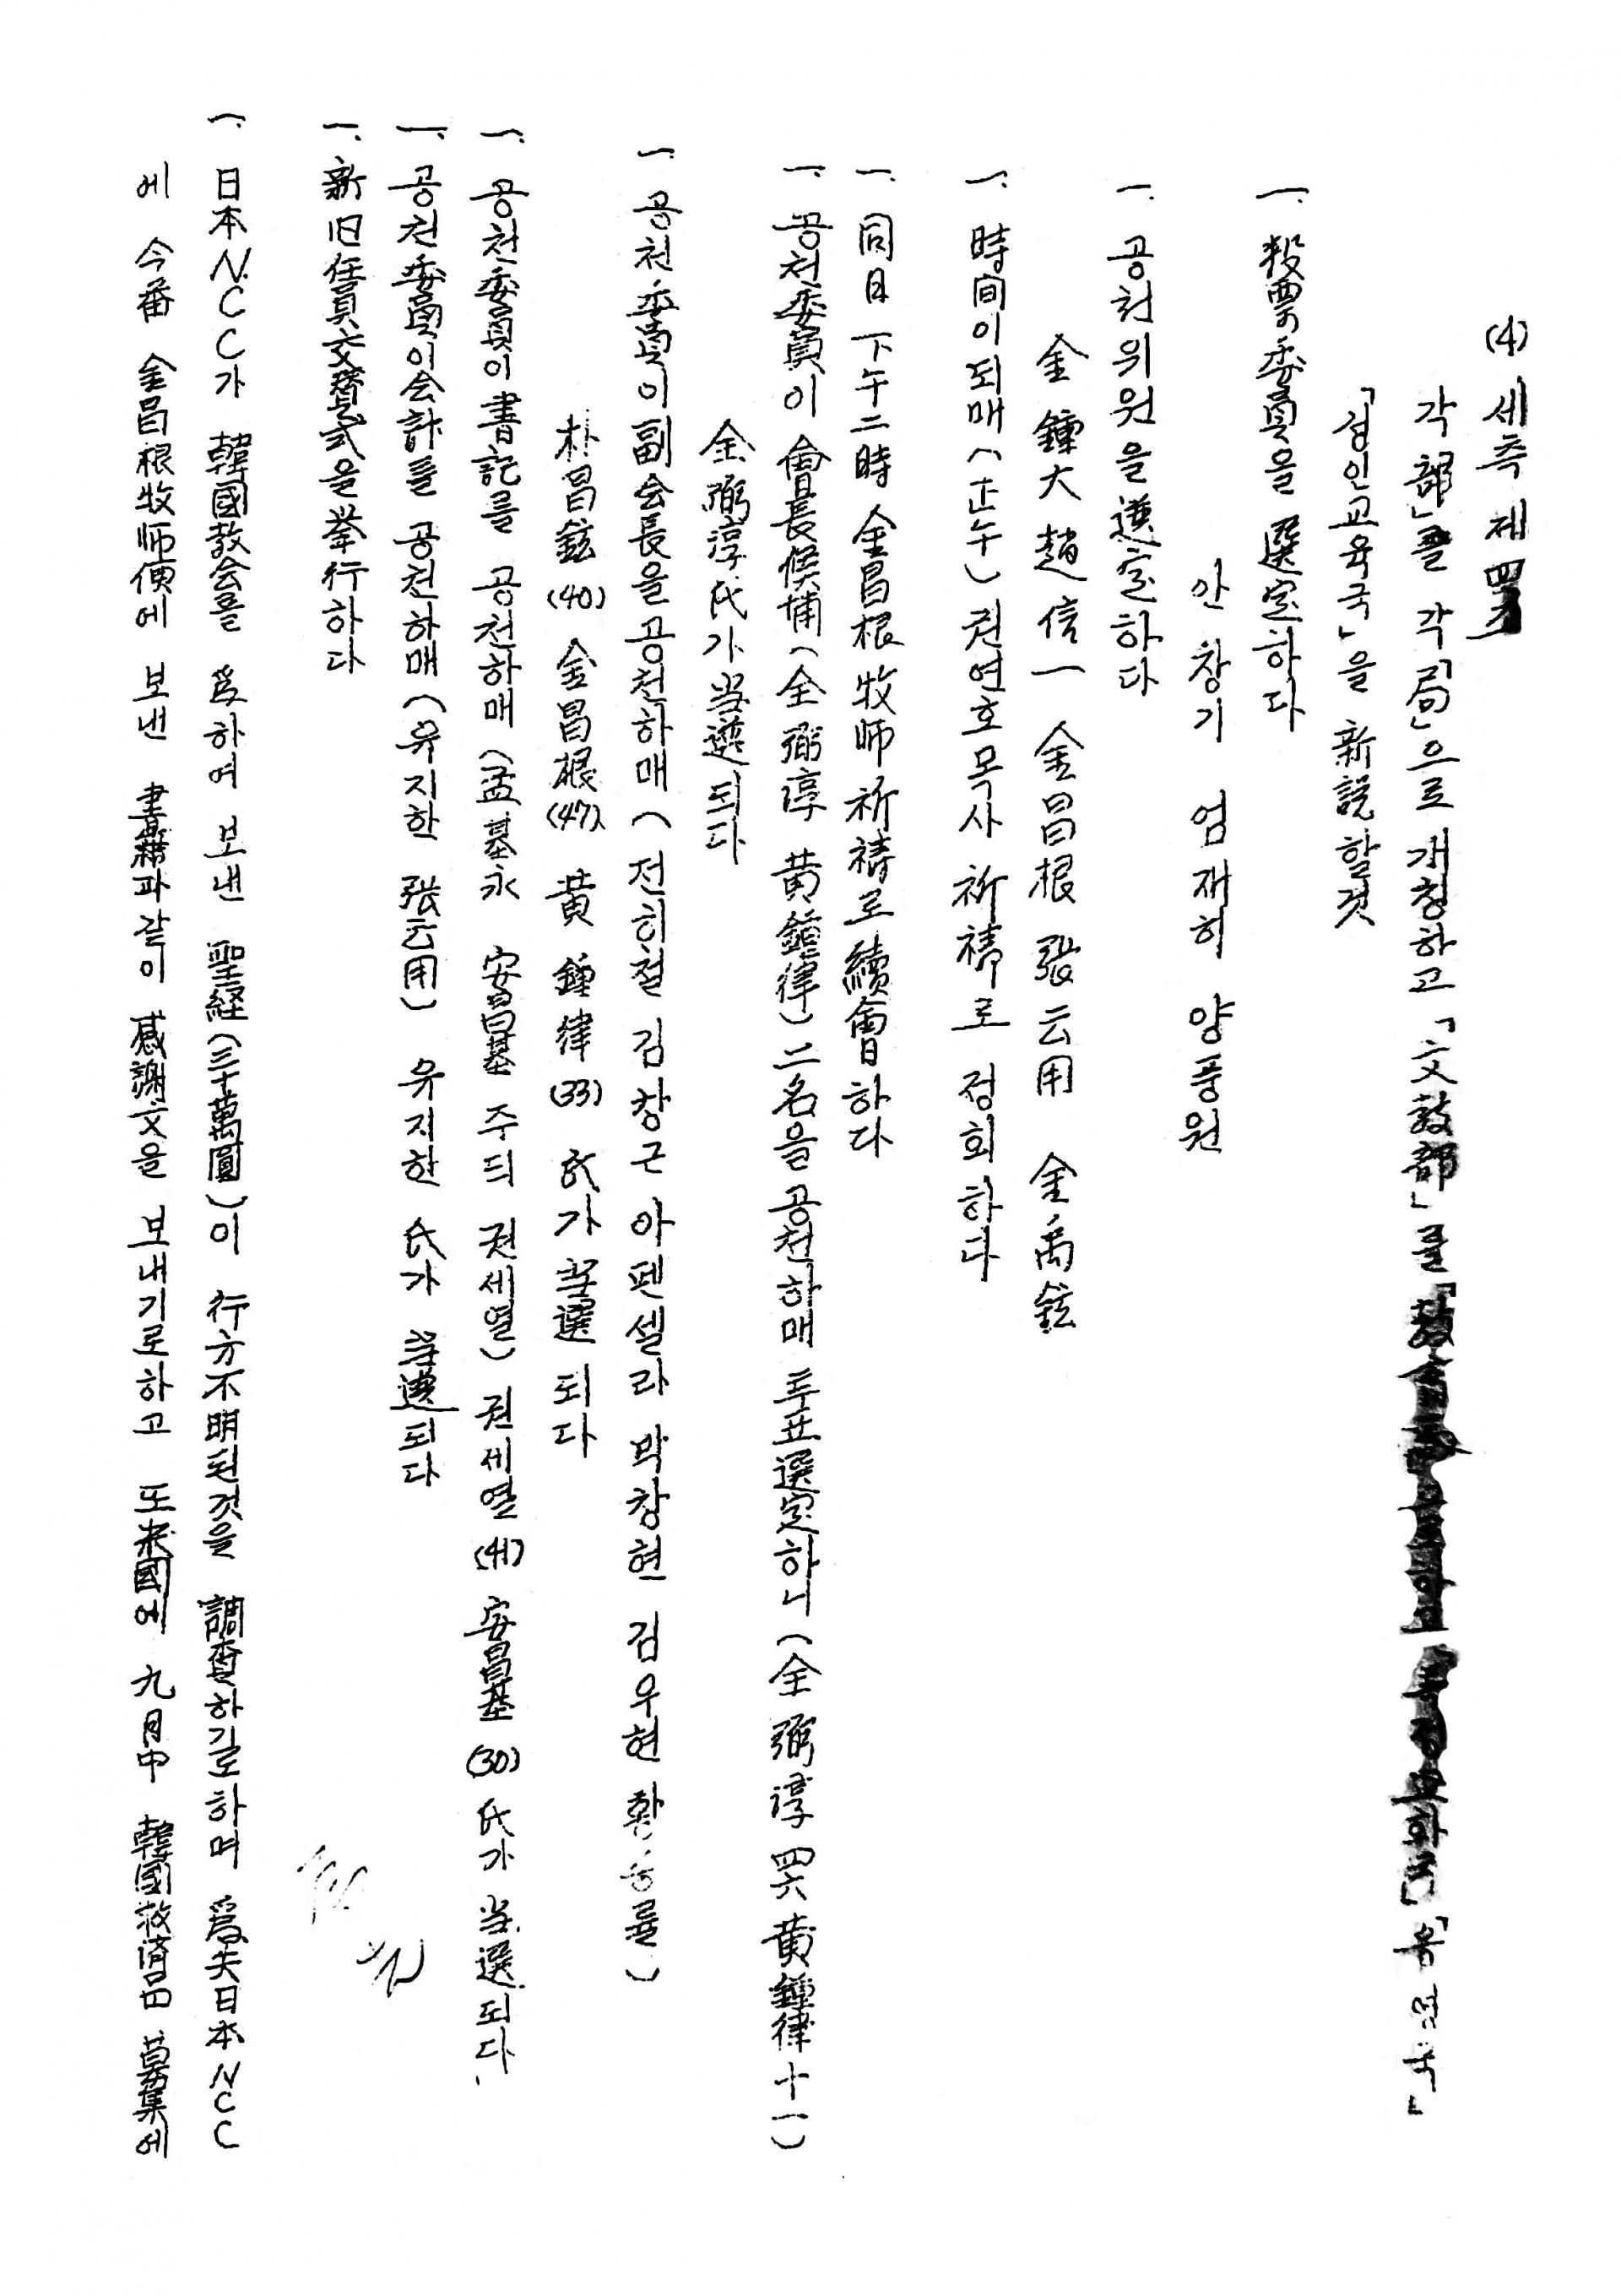 (4) 세측 제四
各「部」를 각「局」으로 개칭하고 「文敎部」를 음 명 국」
「성인교육국」을 新設할것
一. 投票委員을 選定하다
안 창기 엄재히 양풍원
一. 공천위원을 選定하다
金鍾大 趙信一 金昌根 張云用 金禹鉉
一. 時間이되매(正午) 권연호목사 祈禱로 정회하다
一. 同日 下午二時 金昌根 牧师 祈禱로 續會하다
一. 공천委員이 會長候補(全弼淳 黃鍾律) 二名을 공천하매 투표選定하니(全弼淳 四六 黃鍾律 十一)
全弼淳氏가 当選되다
一. 공천委員이 副会長을 공천하매(전히철 김창근 아펜셀라 박창현 김우현 황 률)
朴昌鉉(40) 金昌根(47) 黃鍾律(33) 氏가 当選되다
一. 공천委員이 書記를 공천하매(孟基永 安昌基 주듸 권세열) 권세열(41) 安昌基(30)氏가 当選되다.
一. 공천委員이 会計를 공천하매(유지한 張云用) 유지한 氏가 当選되다
一. 新旧任員交替式을 挙行하다
一. 日本N.C C가 韓國敎会를 爲하여 보낸 聖経(三十萬圓)이 行方不明된것을 調査하길로하며 爲先日本NCC
에 今番 金昌根牧师便에 보낸 書籍과같이 感謝文을 보내기로하고 또米國에 九月中 韓國救濟品 募集에